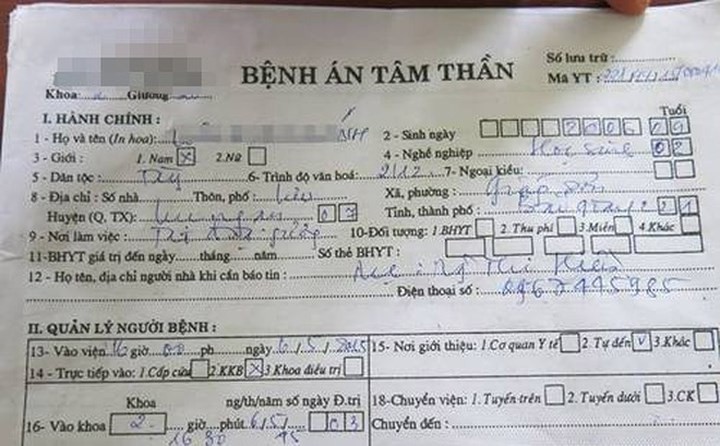 BỆNH ÁN TÂM THẦN
Số lưu trữ:
Mã YT :
Khoa: Giường
I. HÀNH CHÍNH : Tuổi
1 - Họ và tên (In hoa): 2 - Sinh ngày 2006 09
3 - Giới : 1. Nam X 2. Nữ 4 - Nghề nghiệp Học sinh 02
5 - Dân tộc : Tày 6- Trình độ văn hoá: 2/12 7- Ngoại kiều:
8 - Địa chỉ : Số nhà Thôn, phố : Xã, phường :
Huyện (Q, TX): 07 Tỉnh, thành phố : 21
9 - Nơi làm việc : 10-Đối tượng: 1.BHYT 2. Thu phí 3.Miễn 4.Khác
11-BHYT giá trị đến ngày tháng năm Số thẻ BHYT:
12 - Họ tên, địa chỉ người nhà khi cần báo tin : Thị
Điện thoại số : 0967445985
II. QUẢN LÝ NGƯỜI BỆNH :
13- Vào viện 16 giờ 00 ph ngày 6/5/2015 15- Nơi giới thiệu: 1.Cơ quan Y tế 2. Tự đến V 3.Khác
14 - Trực tiếp vào: 1.Cấp cứu 2.KKB X 3.Khoa điều trị
Khoa ng/th/năm số ngày Đ.trị 18-Chuyển viện: 1. Tuyến trên 2. Tuyến dưới 3.CK
16- Vào khoa 2 giờ phút 6/5/ 03 Chuyển đến :
16 30 15